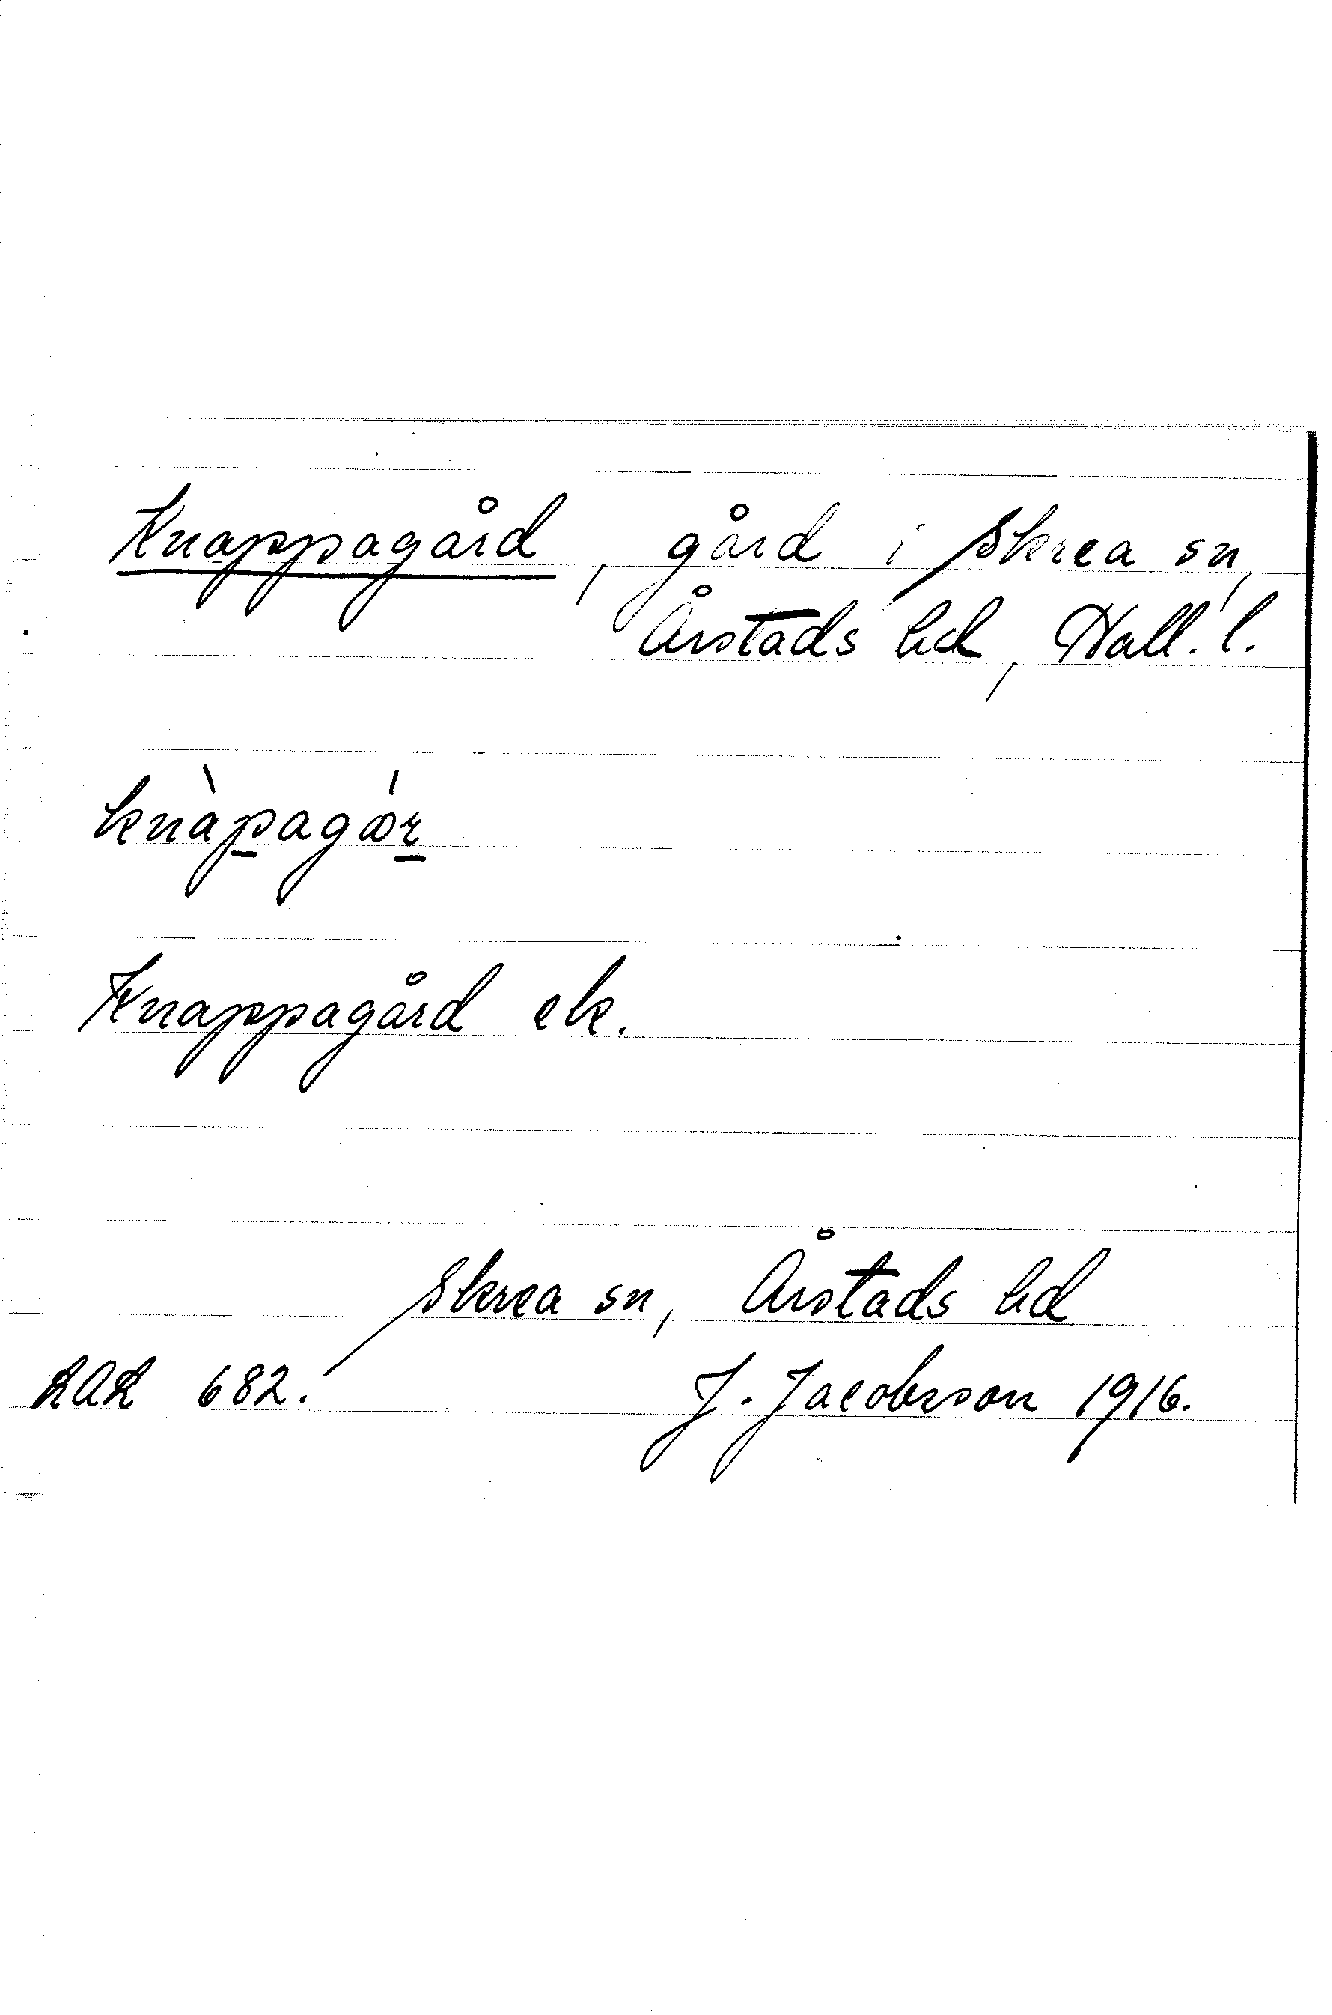 Knappagård, gård i Skrea sn,
Årstads hd, Hall. l.
knàpagór
Knappagård ek.
Skrea sn, Årstads hd
RAÄ 682. J. Jacobsson 1916.